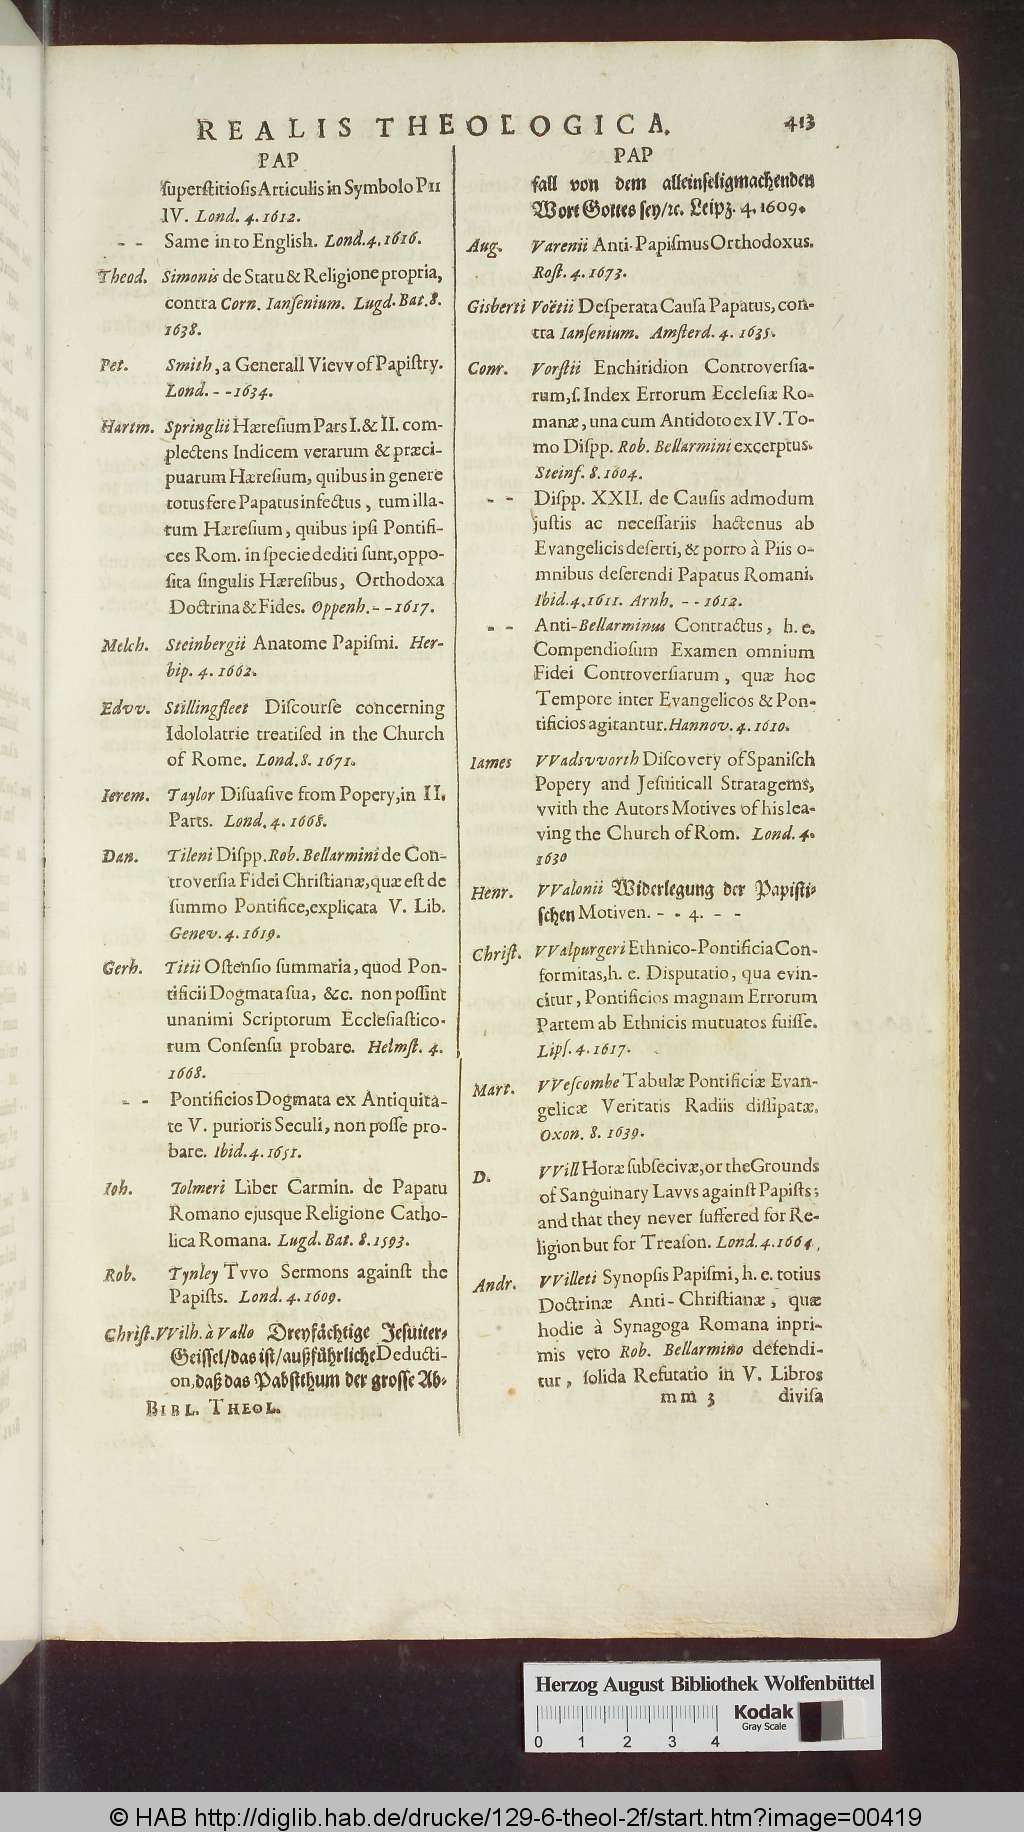 REALIS THEOLOGICA.
413
PAP
ſuperſtitioſis Articulis in Symbolo PII
IV. Lond. 4. 1612.
- - Same into English. Lond. 4. 1616.
Theod. Simonis de Statu & Religione propria,
contra Corn. Ianſenium. Lugd. Bat. 8.
1638.
Pet. Smith, a Generall Vievv of Papiſtry.
Lond. - - 1634.
Hartm. Springlii Hæreſium Pars I. & II. com-
plectens Indicem verarum & præci-
puarum Hæreſium, quibus in genere
totus fere Papatus infectus, tum illa-
rum Hæreſium, quibus ipſi Pontifi-
ces Rom. in ſpecie dediti ſunt, oppo-
ſita ſingulis Hæreſibus, Orthodoxa
Doctrina & Fides. Oppenh. - - 1617.
Melch. Steinbergii Anatome Papiſmi. Her-
bip. 4. 1662.
Edvv. Stillingfleet Diſcourſe concerning
Idololatrie treatiſed in the Church
of Rome. Lond. 8. 1671.
Ierem. Taylor Diſuaſive from Popery, in II.
Parts. Lond. 4. 1668.
Dan. Tileni Diſpp. Rob. Bellarmini de Con-
troverſia Fidei Chriſtianæ, quæ eſt de
ſummo Pontifice, explicata V. Lib.
Genev. 4. 1619.
Gerh. Titii Oſtenſio ſummaria, quod Pon-
tificii Dogmata ſua, &c. non poſſint
unanimi Scriptorum Eccleſiaſtico-
rum Conſenſu probare. Helmſt. 4.
1668.
- - Pontificios Dogmata ex Antiquita-
te V. purioris Seculi, non poſſe pro-
bare. Ibid. 4. 1651.
Ioh. Tolmeri Liber Carmin. de Papatu
Romano ejusque Religione Catho-
lica Romana. Lugd. Bat. 8. 1593.
Rob. Tynley Tvvo Sermons againſt the
Papiſts. Lond. 4. 1609.
Chriſt. VVilh. à Vallo Dreyfächtige Jeſuiter-
Geiſſel / das iſt / außführliche Deducti-
on, daß das Pabſtthum der groſſe Ab-
BIBL. THEOL.
PAP
fall von dem alleinſeligmachenden
Wort Gottes ſey / ꝛc. Leipz. 4. 1609.
Aug. Varenii Anti-Papiſmus Orthodoxus.
Roſt. 4. 1673.
Gisberti Voëtii Deſperata Cauſa Papatus, con-
tra Ianſenium. Amſterd. 4. 1635.
Conr. Vorſtii Enchiridion Controverſia-
rum, ſ. Index Errorum Eccleſiæ Ro-
manæ, una cum Antidoto ex IV. To-
mo Diſpp. Rob. Bellarmini excerptus.
Steinf. 8. 1604.
- - Diſpp. XXII. de Cauſis admodum
juſtis ac neceſſariis hactenus ab
Evangelicis deſerti, & porro à Piis o-
mnibus deſerendi Papatus Romani.
Ibid. 4. 1611. Arnh. - - 1612.
- - Anti-Bellarminus Contractus, h. e.
Compendioſum Examen omnium
Fidei Controverſiarum, quæ hoc
Tempore inter Evangelicos & Pon-
tificios agitantur. Hannov. 4. 1610.
Iames VVadsvvorth Diſcovery of Spaniſch
Popery and Jeſuiticall Stratagems,
vvith the Autors Motives of his lea-
ving the Church of Rom. Lond. 4.
1630
Henr. VValonii Widerlegung der Papiſti-
ſchen Motiven. - - 4. - -
Chriſt. VValpurgeri Ethnico-Pontificia Con-
formitas, h. e. Disputatio, qua evin-
citur, Pontificios magnam Errorum
Partem ab Ethnicis mutuatos fuiſſe.
Lipſ. 4. 1617.
Mart. VVeſcombe Tabulæ Pontificiæ Evan-
gelicæ Veritatis Radiis diſſipatæ.
Oxon. 8. 1639.
D. VVill Horæ ſubſecivæ, or the Grounds
of Sanguinary Lavvs againſt Papiſts;
and that they never ſuffered for Re-
ligion but for Treaſon. Lond. 4. 1664.
Andr. VVilleti Synopſis Papiſmi, h. e. totius
Doctrinæ Anti-Chriſtianæ, quæ
hodie à Synagoga Romana inpri-
mis vero Rob. Bellarmino defendi-
tur, ſolida Refutatio in V. Libros
mm 3 diviſa
Herzog August Bibliothek Wolfenbüttel
0 1 2 3 4
Kodak
Gray Scale
© HAB http://diglib.hab.de/drucke/129-6-theol-2f/start.htm?image=00419